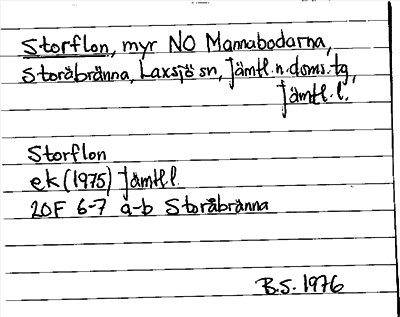 Storflon, myr NO Mannabodarna,
Storåbränna, Laxsjö sn, Jämtl. n. doms. tg,
Jämtl. l.
Storflon
ek (1975) Jämtl l.
20F 6-7 a-b Storåbränna
B.S. 1976